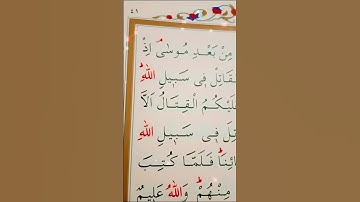 ٤١
مِنْ بَعْدِ مُوسٰىۘ اِذْ
نُقَاتِلْ فٖي سَبٖيلِ اللّٰهِؕ
عَلَيْكُمُ الْقِتَالُ اَلَّا
نُقَاتِلَ فٖي سَبٖيلِ اللّٰهِ
وَاَبْنَٓائِنَاؕ فَلَمَّا كُتِبَ
مِنْهُمْؕ وَاللّٰهُ عَلٖيمٌ